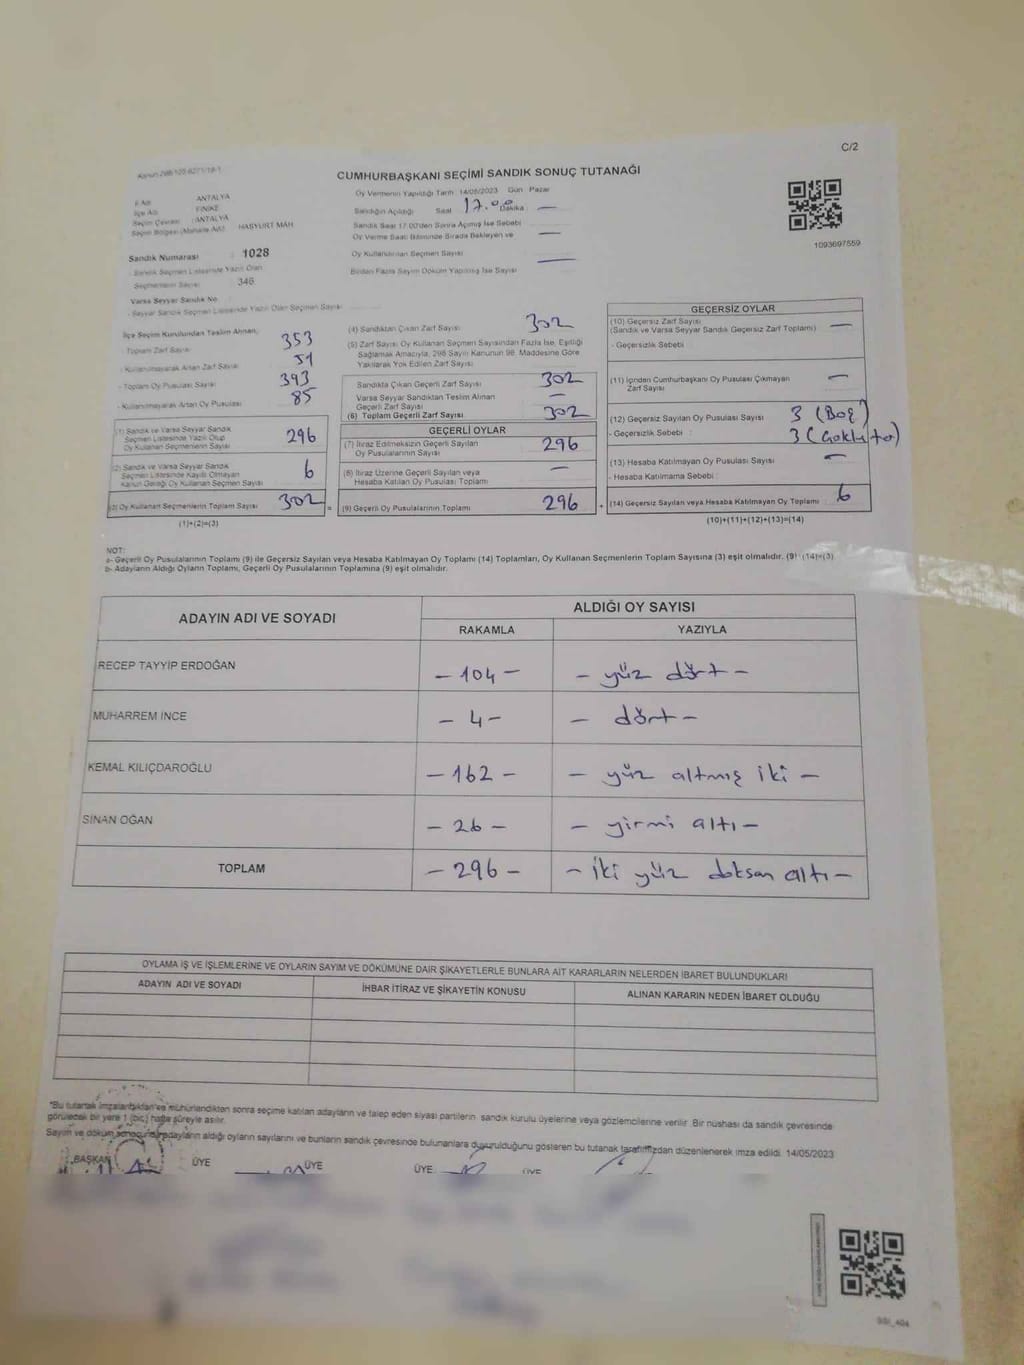 C/2
CUMHURBAŞKANI SEÇİMİ SANDIK SONUÇ TUTANAĞI
Oy Vermenin Yapıldığı Tarih 14/05/2023 Gün Pazar
İl Adı ANTALYA
İlçe Adı FİNİKE
Seçim Çevresi ANTALYA
Seçim Bölgesi (Mahalle Adı) HASYURT MAH
Sandığın Açıldığı Saat 17.00 Dakika —
Sandık Saat 17.00'den Sonra Açılmış İse Sebebi
Oy Verme Saati Bitiminde Sırada Bekleyen ve —
Oy Kullandırılan Seçmen Sayısı
Birden Fazla Sayım Döküm Yapılmış İse Sayısı —
1093697559
Sandık Numarası 1028
Sandık Seçmen Listesinde Yazılı Olan
Seçmenlerin Sayısı 346
Varsa Seyyar Sandık No
- Seyyar Sandık Seçmen Listesinde Yazılı Olan Seçmen Sayısı
İlçe Seçim Kurulundan Teslim Alınan;
- Toplam Zarf Sayısı 353
- Kullanılmayarak Artan Zarf Sayısı 51
- Toplam Oy Pusulası Sayısı 393
- Kullanılmayarak Artan Oy Pusulası 85
(1) Sandık ve Varsa Seyyar Sandık
Seçmen Listesinde Yazılı Olup
Oy Kullanan Seçmenlerin Sayısı 296
(2) Sandık ve Varsa Seyyar Sandık
Seçmen Listesinde Kayıtlı Olmayan
Kanun Gereği Oy Kullanan Seçmen Sayısı 6
(3) Oy Kullanan Seçmenlerin Toplam Sayısı 302 =
(1)+(2)=(3)
(4) Sandıktan Çıkan Zarf Sayısı 302
(5) Zarf Sayısı Oy Kullanan Seçmen Sayısından Fazla İse, Eşitliği
Sağlamak Amacıyla, 298 Sayılı Kanunun 98. Maddesine Göre
Yakılarak Yok Edilen Zarf Sayısı
Sandıkta Çıkan Geçerli Zarf Sayısı 302
Varsa Seyyar Sandıktan Teslim Alınan
Geçerli Zarf Sayısı —
(6) Toplam Geçerli Zarf Sayısı 302
GEÇERLİ OYLAR
(7) İtiraz Edilmeksizin Geçerli Sayılan
Oy Pusulalarının Sayısı 296
(8) İtiraz Üzerine Geçerli Sayılan veya
Hesaba Katılan Oy Pusulası Toplamı —
(9) Geçerli Oy Pusulalarının Toplamı 296 +
GEÇERSİZ OYLAR
(10) Geçersiz Zarf Sayısı
(Sandık ve Varsa Seyyar Sandık Geçersiz Zarf Toplamı) —
- Geçersizlik Sebebi
(11) İçinden Cumhurbaşkanı Oy Pusulası Çıkmayan
Zarf Sayısı —
(12) Geçersiz Sayılan Oy Pusulası Sayısı 3 (Boş)
- Geçersizlik Sebebi 3
(13) Hesaba Katılmayan Oy Pusulası Sayısı —
- Hesaba Katılmama Sebebi
(14) Geçersiz Sayılan veya Hesaba Katılmayan Oy Toplamı 6
(10)+(11)+(12)+(13)=(14)
NOT:
a- Geçerli Oy Pusulalarının Toplamı (9) ile Geçersiz Sayılan veya Hesaba Katılmayan Oy Toplamı (14) Toplamları, Oy Kullanan Seçmenlerin Toplam Sayısına (3) eşit olmalıdır. (9)+(14)=(3)
b- Adayların Aldığı Oyların Toplamı, Geçerli Oy Pusulalarının Toplamına (9) eşit olmalıdır.
ADAYIN ADI VE SOYADI ALDIĞI OY SAYISI
RAKAMLA YAZIYLA
RECEP TAYYİP ERDOĞAN - 104 - - yüz dört -
MUHARREM İNCE - 4 - - dört -
KEMAL KILIÇDAROĞLU - 162 - - yüz altmış iki -
SİNAN OĞAN - 26 - - yirmi altı -
TOPLAM - 296 - - iki yüz doksan altı -
OYLAMA İŞ VE İŞLEMLERİNE VE OYLARIN SAYIM VE DÖKÜMÜNE DAİR ŞİKAYETLERLE BUNLARA AİT KARARLARIN NELERDEN İBARET BULUNDUKLARI
ADAYIN ADI VE SOYADI İHBAR İTİRAZ VE ŞİKAYETİN KONUSU ALINAN KARARIN NEDEN İBARET OLDUĞU
*Bu tutanak imzalandıktan ve mühürlendikten sonra seçime katılan adayların ve talep eden siyasi partilerin sandık kurulu üyelerine veya gözlemcilerine verilir. Bir nüshası da sandık çevresinde
görülecek bir yere 1 (bir) hafta süreyle asılır.
Sayım ve döküm sonucunda adayların aldığı oyların sayılarını ve bunların sandık çevresinde bulunanlara duyurulduğunu gösteren bu tutanak tarafımızdan düzenlenerek imza edildi. 14/05/2023
BAŞKAN ÜYE ÜYE ÜYE ÜYE